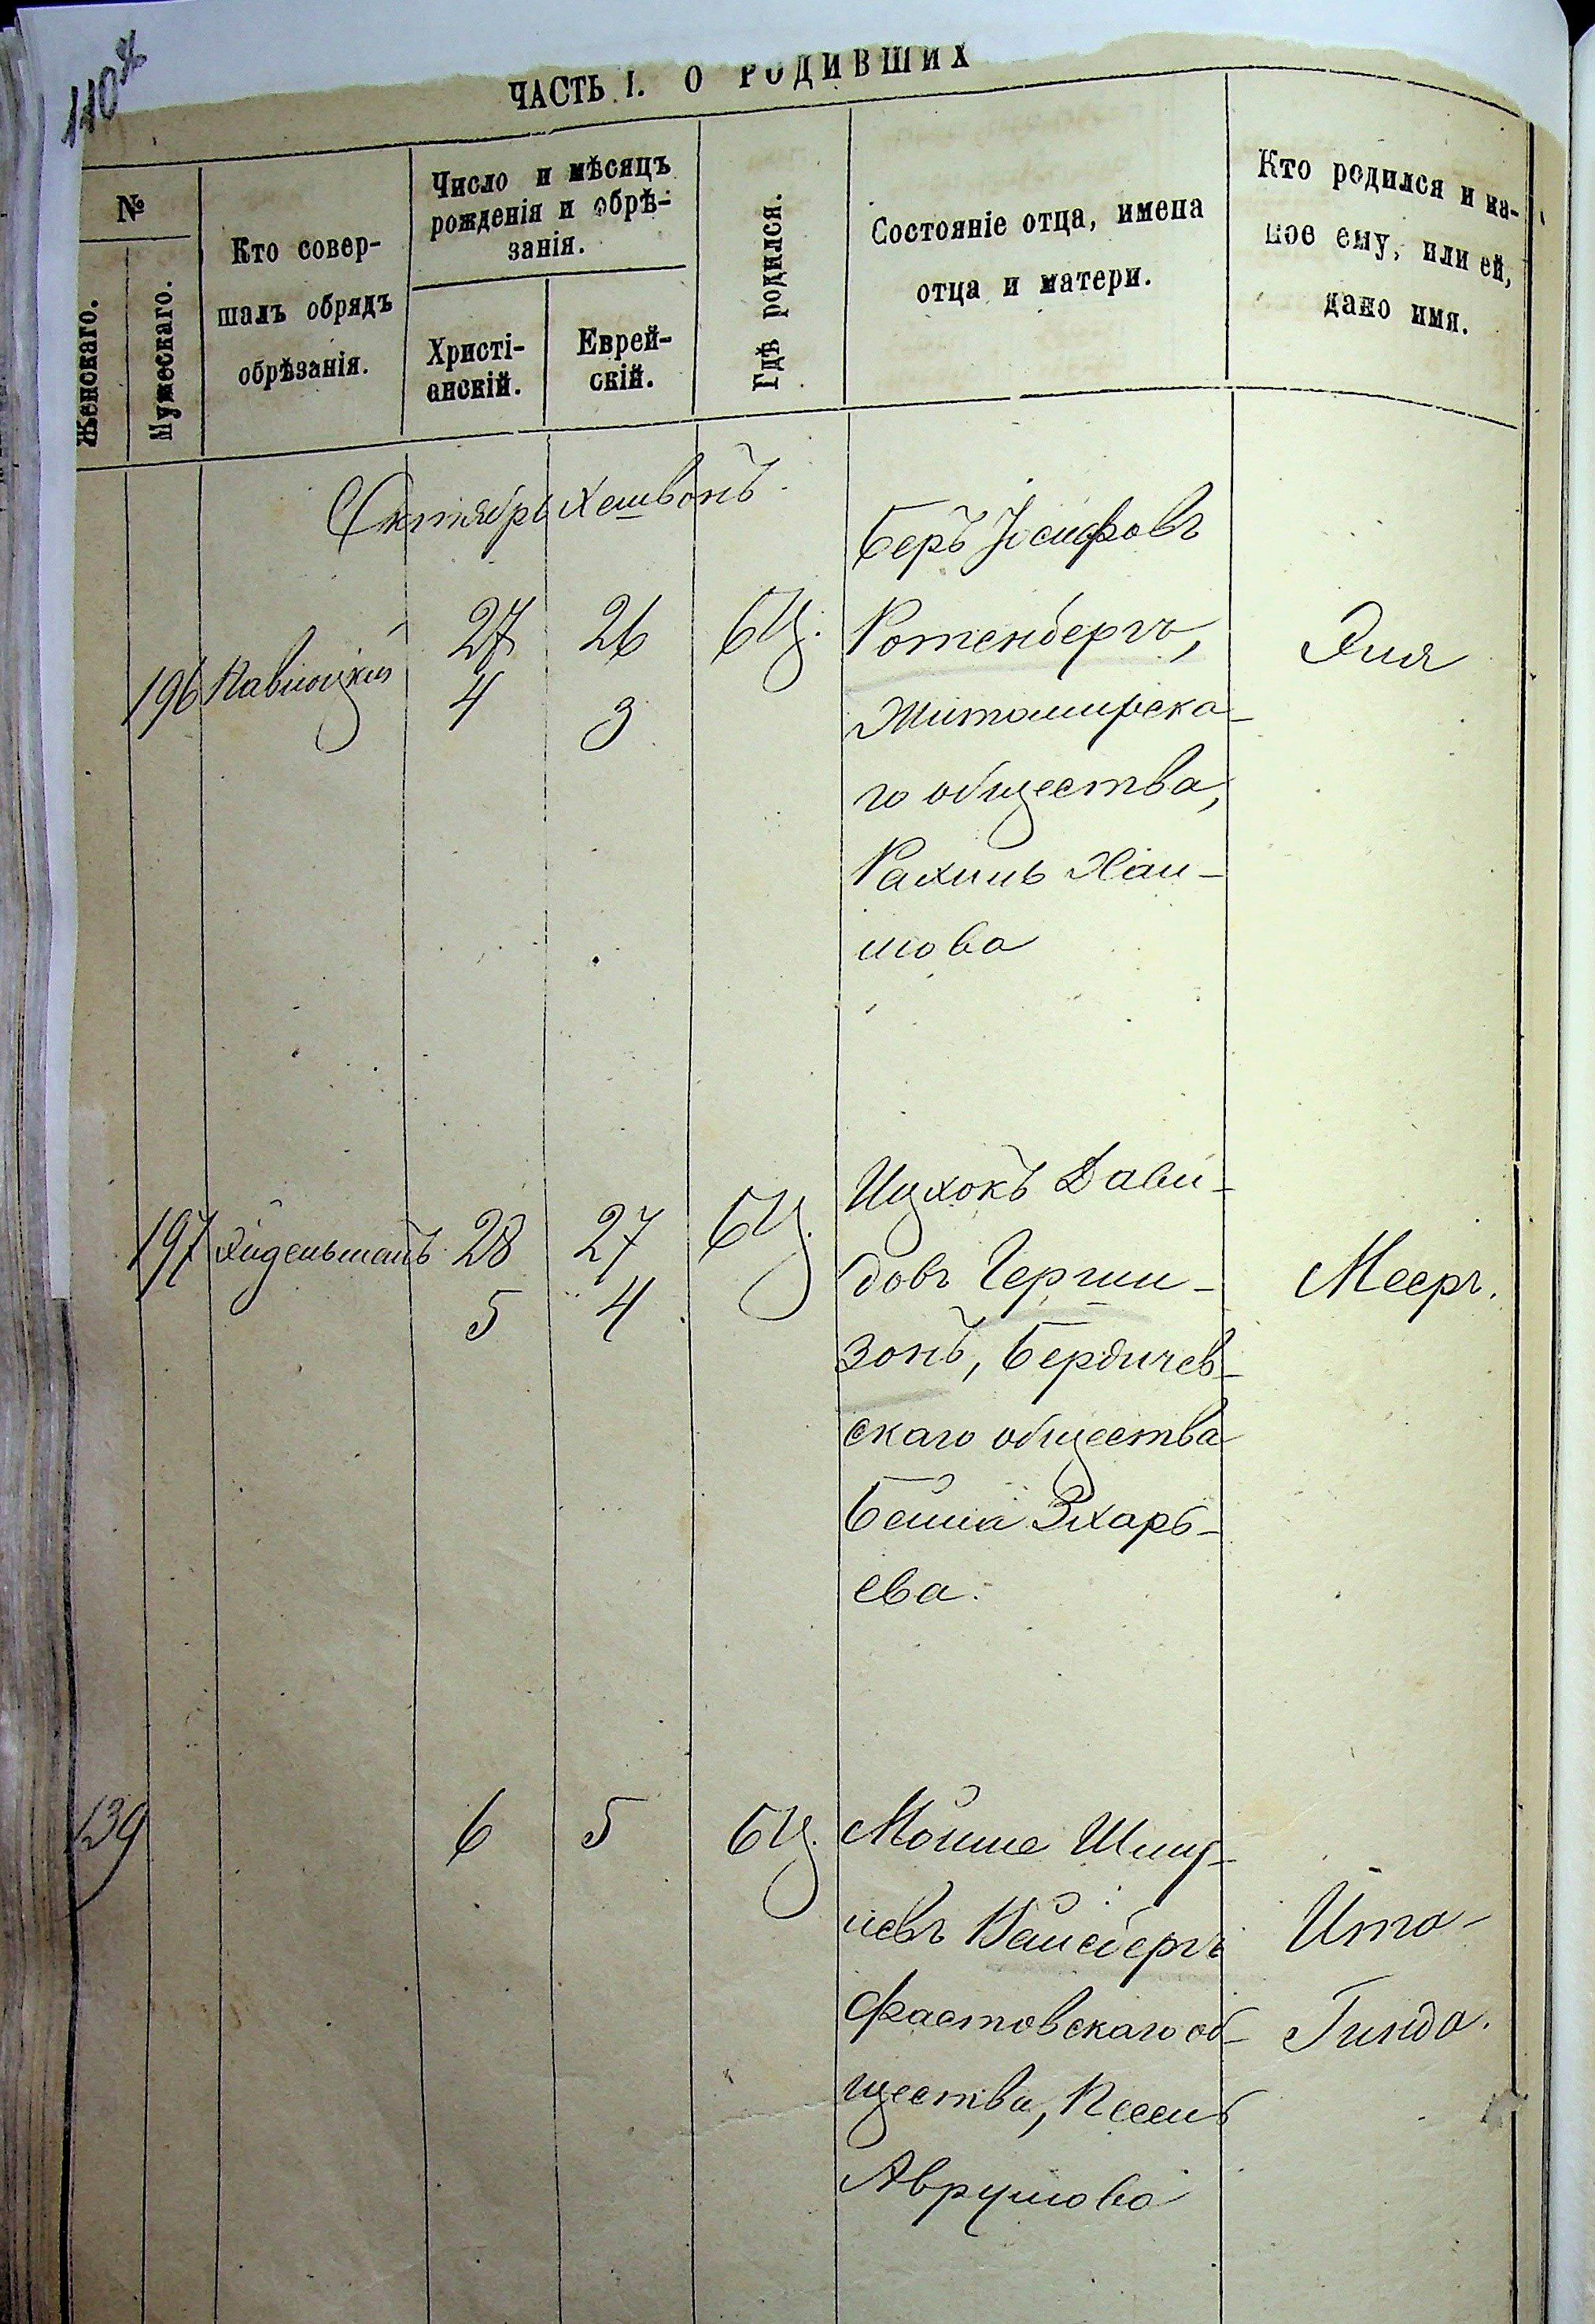 110 об
ЧАСТЬ I. О РОДИВШИХ
№
Женскаго.
Мужескаго.
Кто совер-
шалъ обрядъ
обрѣзанія.
Число и мѣсяцъ
рожденія и обрѣ-
занія.
Христі-
анскій.
Еврей-
скій.
Гдѣ родился.
Состояніе отца, имена
отца и матери.
Кто родился и ка-
кое ему, или ей,
дано имя.
Октябрь Хешвонъ
196
27 26 БЦ.
4 3
Беръ Іосифовъ
Ротенбергъ,
Житомирска-
го общества,
Рахиль Хаи-
мова
Эля
197
28 27 БЦ.
5 4
Ицхокъ Дави-
довъ Герши-
зонъ, Бердичев-
скаго общества
Бейла Зхарь-
ева.
Мееръ.
139
6 5 БЦ.
Мойше Шму-
левъ Вайсбергъ
Фастовскаго об-
щества, Песель
Аврумова
Ита-
Гинда.